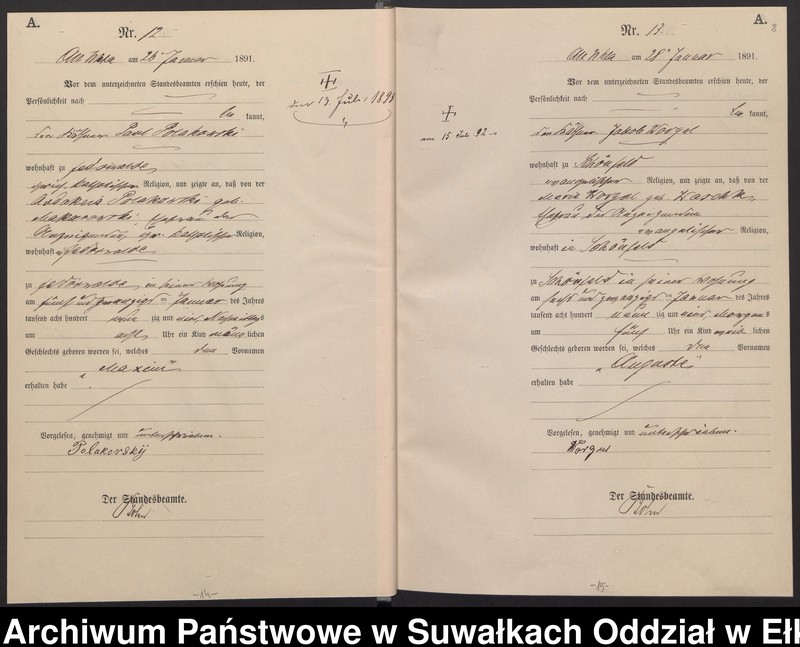 A.
Nr. 12
Alt Wxxx am 28 Januar 1891.
Vor dem unterzeichneten Standesbeamten erschien heute, der
Persönlichkeit nach
be kannt,
der Käthner Paul Polakowski
wohnhaft zu Fedorwalde
griech. katholischer Religion, und zeigte an, daß von der
Polakowski geb.
Makarowski Ehefrau des
Anzeigenden, gr. katholischer Religion,
wohnhaft Fedorwalde
zu Fedorwalde in seiner Wohnung
am fünf und zwanzigst en Januar des Jahres
tausend acht hundert neun zig und eins Nachmittags
um acht Uhr ein Kind männ lichen
Geschlechts geboren worden sei, welches den Vornamen
„Maxim"
erhalten habe
Vorgelesen, genehmigt und unterschrieben.
Polakovskij
Der Standesbeamte.
-14-
den 19. Juli 1891
A.
8
Nr. 13
28 Januar 1891.
Vor dem unterzeichneten Standesbeamten erschien heute, der
Persönlichkeit nach
be kannt,
der Käthner Jakob Worgul
wohnhaft zu Schönfeld
evangelischer Religion, und zeigte an, daß von der
Marie Worgul geb.
Ehefrau des Anzeigenden
evangelischer Religion,
wohnhaft in Schönfeld
zu Schönfeld in seiner Wohnung
am sechs und zwanzigst en Januar des Jahres
tausend acht hundert neun zig und eins Morgens
um fünf Uhr ein Kind weib lichen
Geschlechts geboren worden sei, welches den Vornamen
„Auguste"
erhalten habe
Vorgelesen, genehmigt und unterschrieben.
Worgul
Der Standesbeamte.
-15-
am 15 Juli 92
Archiwum Państwowe w Suwałkach Oddział w Ełk